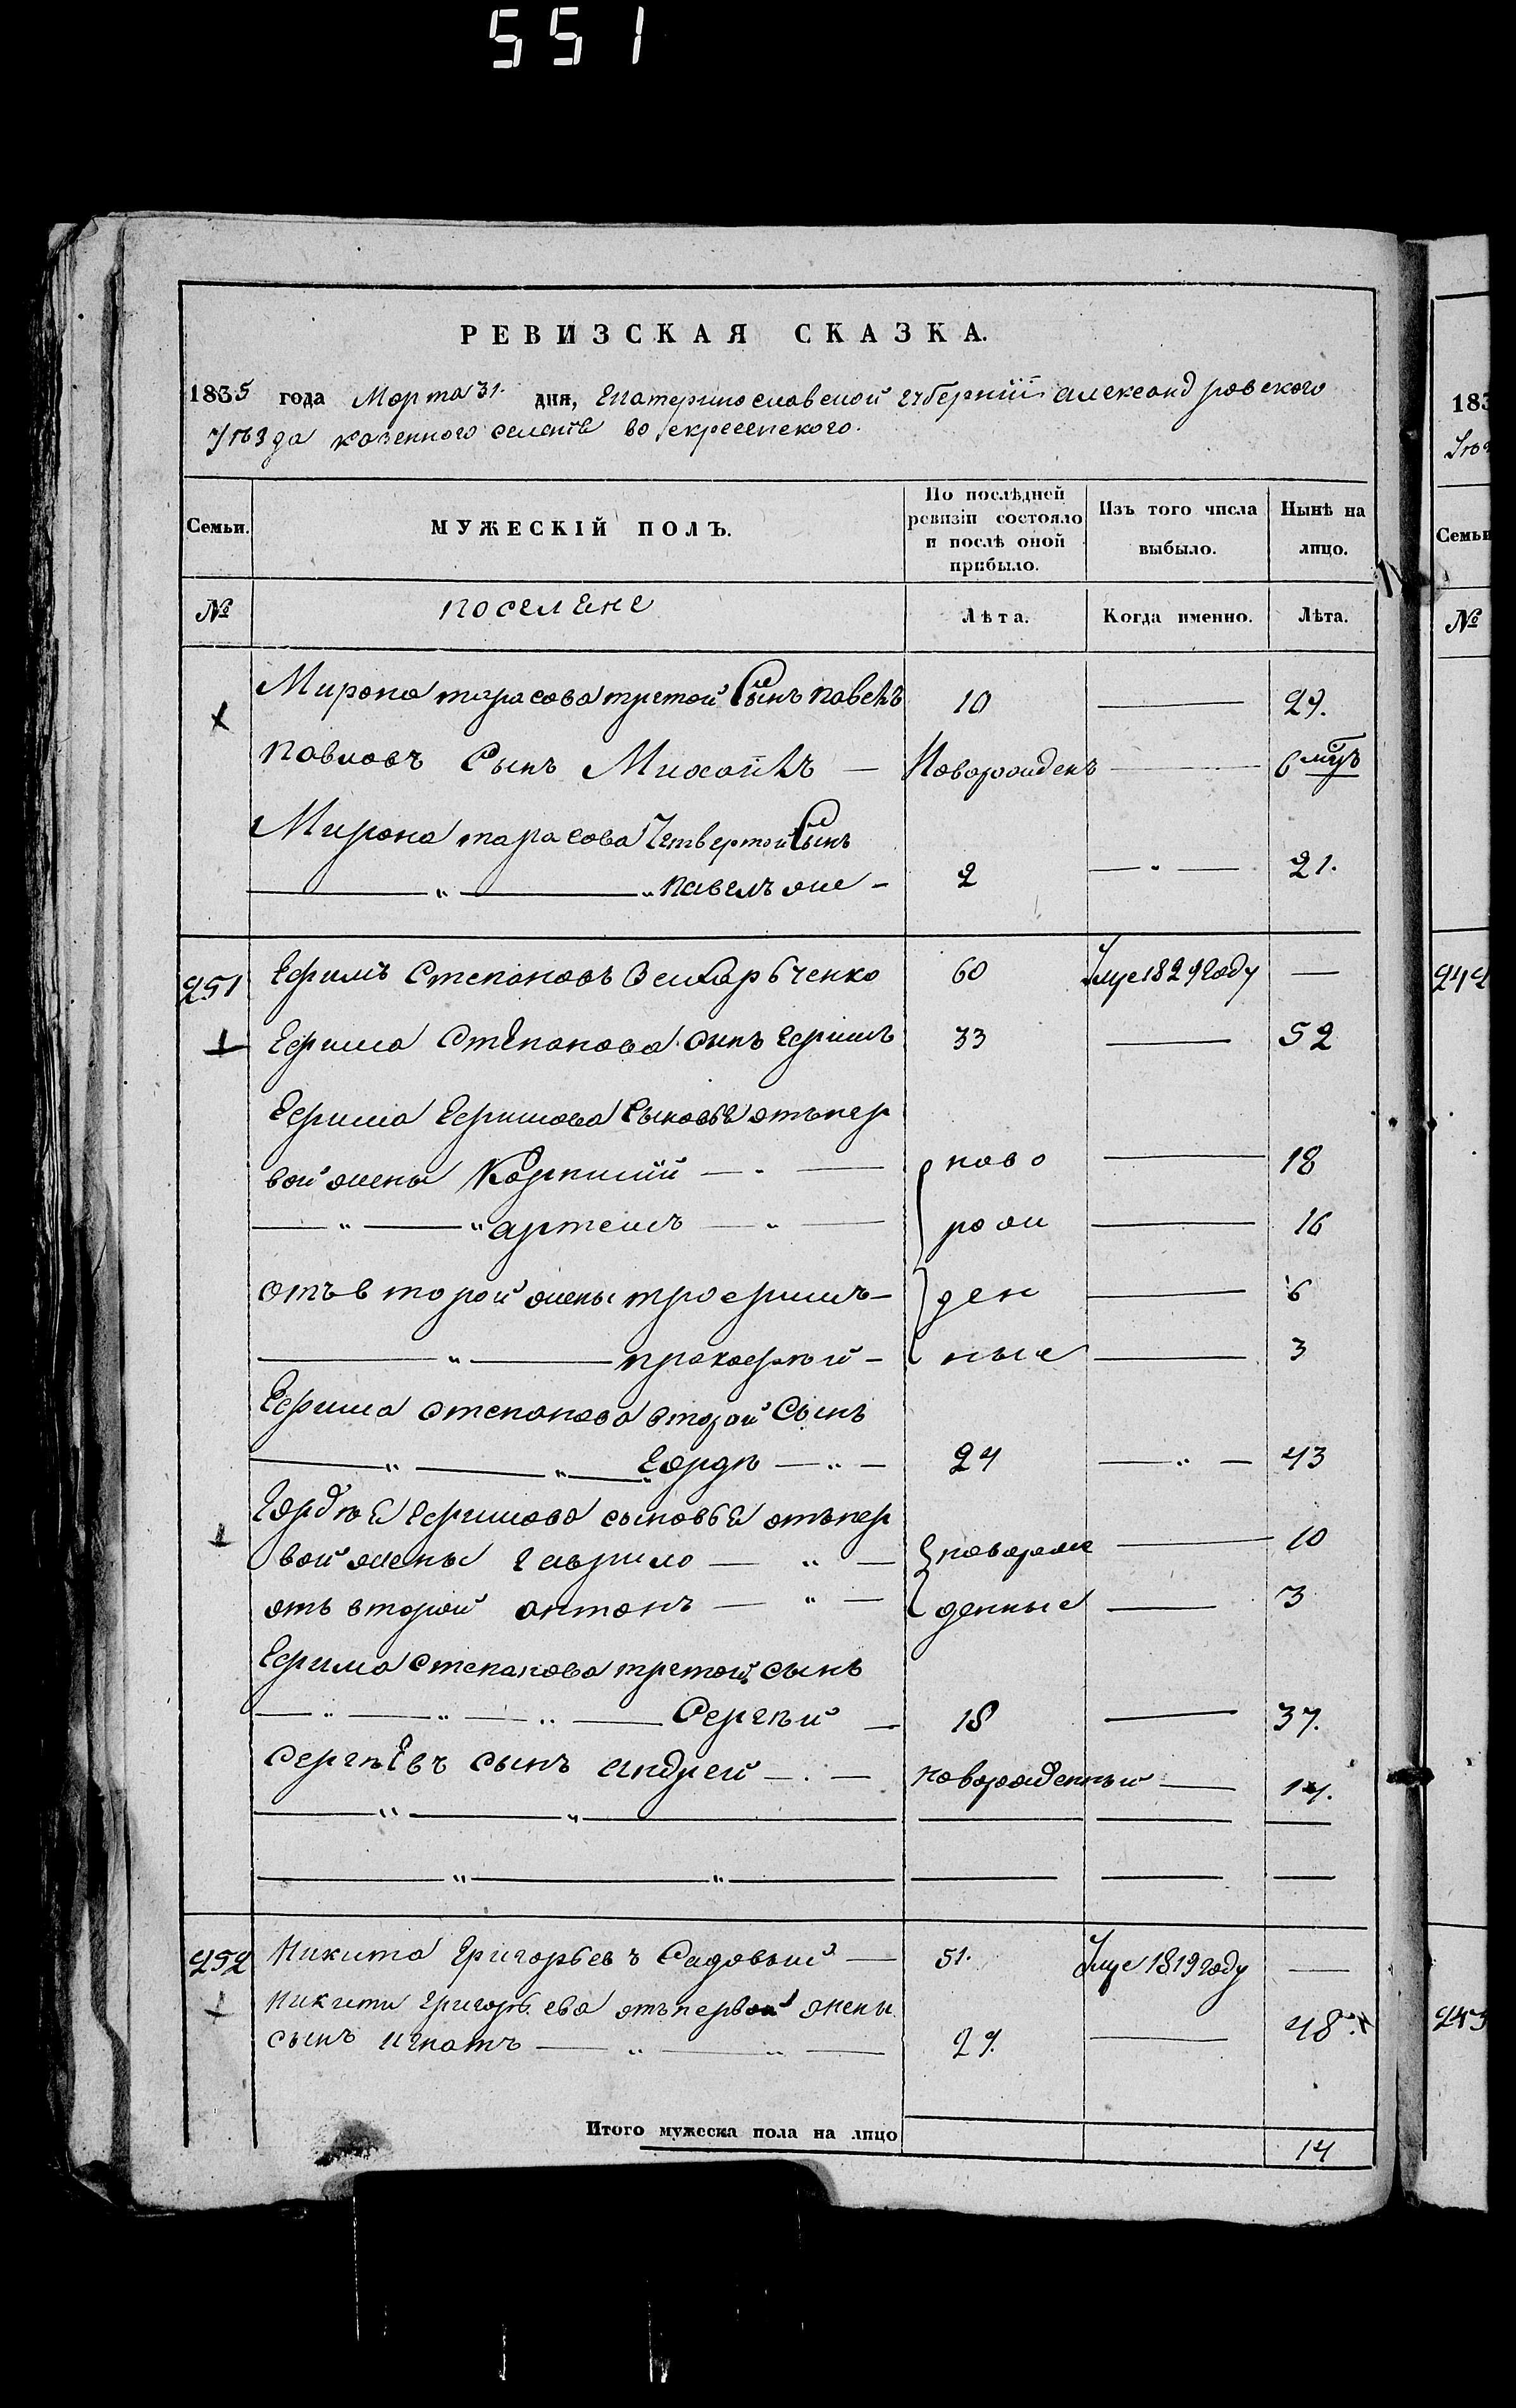 551
РЕВИЗСКАЯ СКАЗКА.
1835 года Марта 31. дня, Екатеринославской губернiи александровского
уѣзда казенного селенiя воскресенского.
Семьи. МУЖЕСКIЙ ПОЛЪ. По послѣдней ревизiи состояло и послѣ оной прибыло. Изъ того числа выбыло. Нынѣ на лицо.
№ поселяне Лѣта. Когда именно. Лѣта.
Мирона тарасова третой Сынъ павелъ 10 29.
павловъ Сынъ Михайлъ — Новорожденъ 6 мцъ
Мирона тарасова Четвертой Сынъ
павелъ же - 2 21.
251 Ефимъ Степановъ 60 1829 году —
Ефима Степанова сынъ Ефимъ 33 52
Ефима Ефимова сыновья отъ пер
вой жены — ново 18
артемъ — рож 16
отъ второй жены трофимъ — ден 6
прокофѣй — ные 3
Ефима степанова второй Сынъ
Гордѣ — 24 43
Гордѣя Ефимова сыновья отъ пер
вой жены гаврило — новорож 10
отъ второй антонъ — денные 3
Ефима степанова третой сынъ
Сергѣй — 18 37.
Сергѣевъ сынъ андрей — новорожденный 14.
252 Никита Григорьевъ Садовый — 51. 1819 году —
Никиты григорьева отъ первой жены
сынъ игнатъ — 29. 48.
Итого мужеска пола на лицо 14
183
Семьи
№